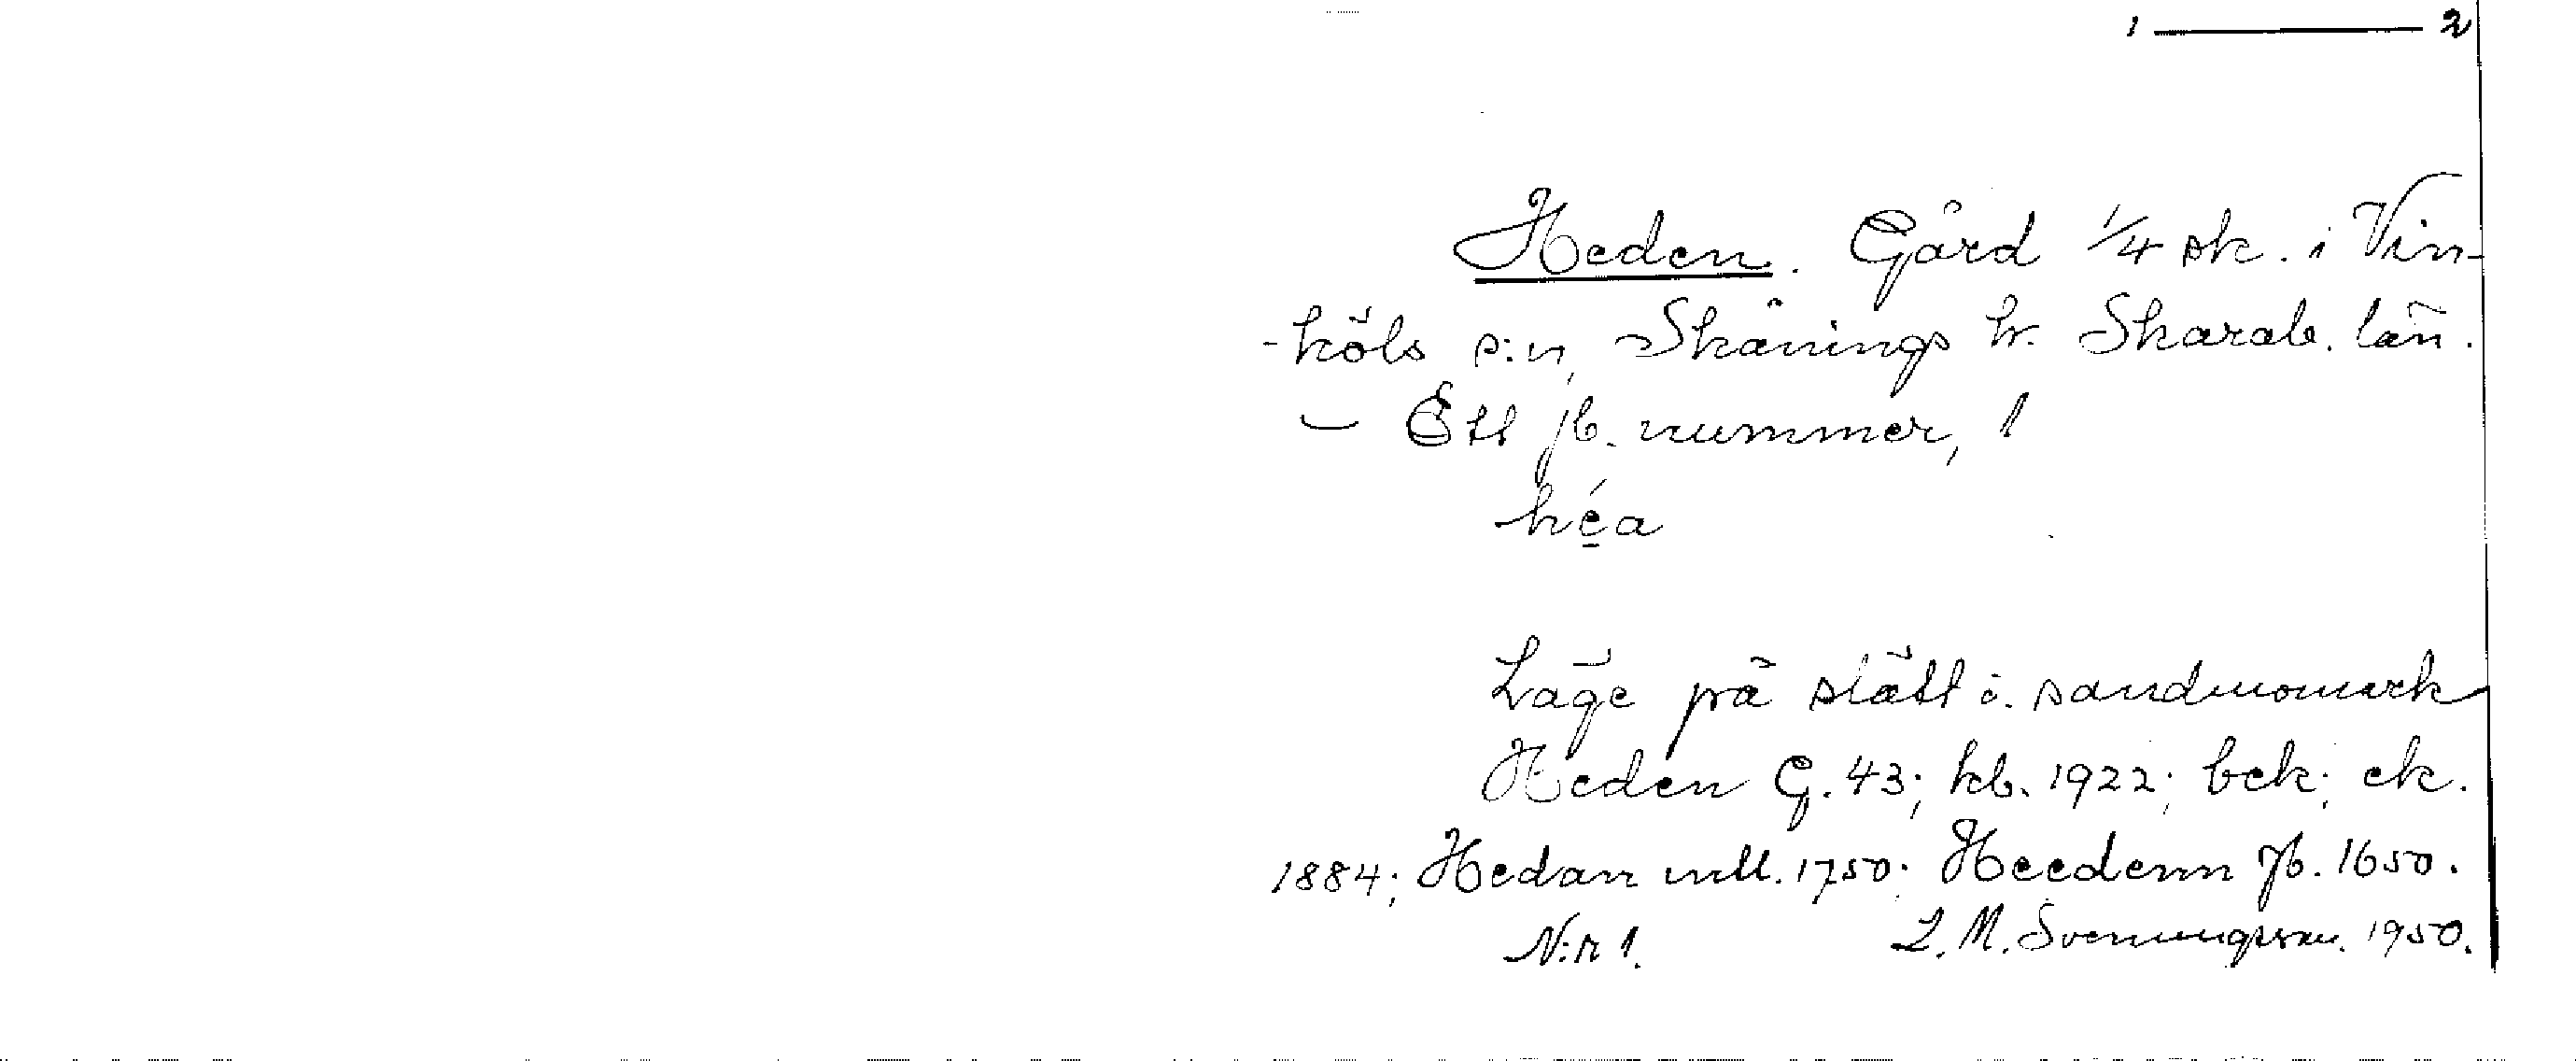 1 — 2
Heden. Gård 1/4 sk. i Vin-
-köls s:n, Skånings hr. Skarab. län.
- Ett jb. nummer, 1
héa
Läge på slätt i. sandmomark
Heden G. 43; kb. 1922; bek; ek.
1884; Hedan mll. 1750; Heedenn Jb. 1650.
N:r 1. L. M. Svenungsson. 1950.